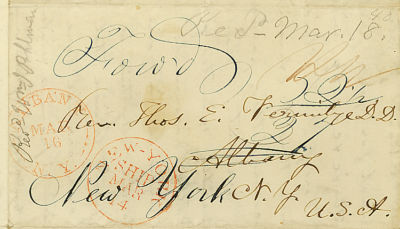 Rec'd Mar. 18.
Forw'd
Rev. Thos. E. Vermilye D.D.
Albany
New York N.Y.
U.S.A.
ALBANY
MAR
16
N.Y.
NEW-YORK
SHIP
MAR
4